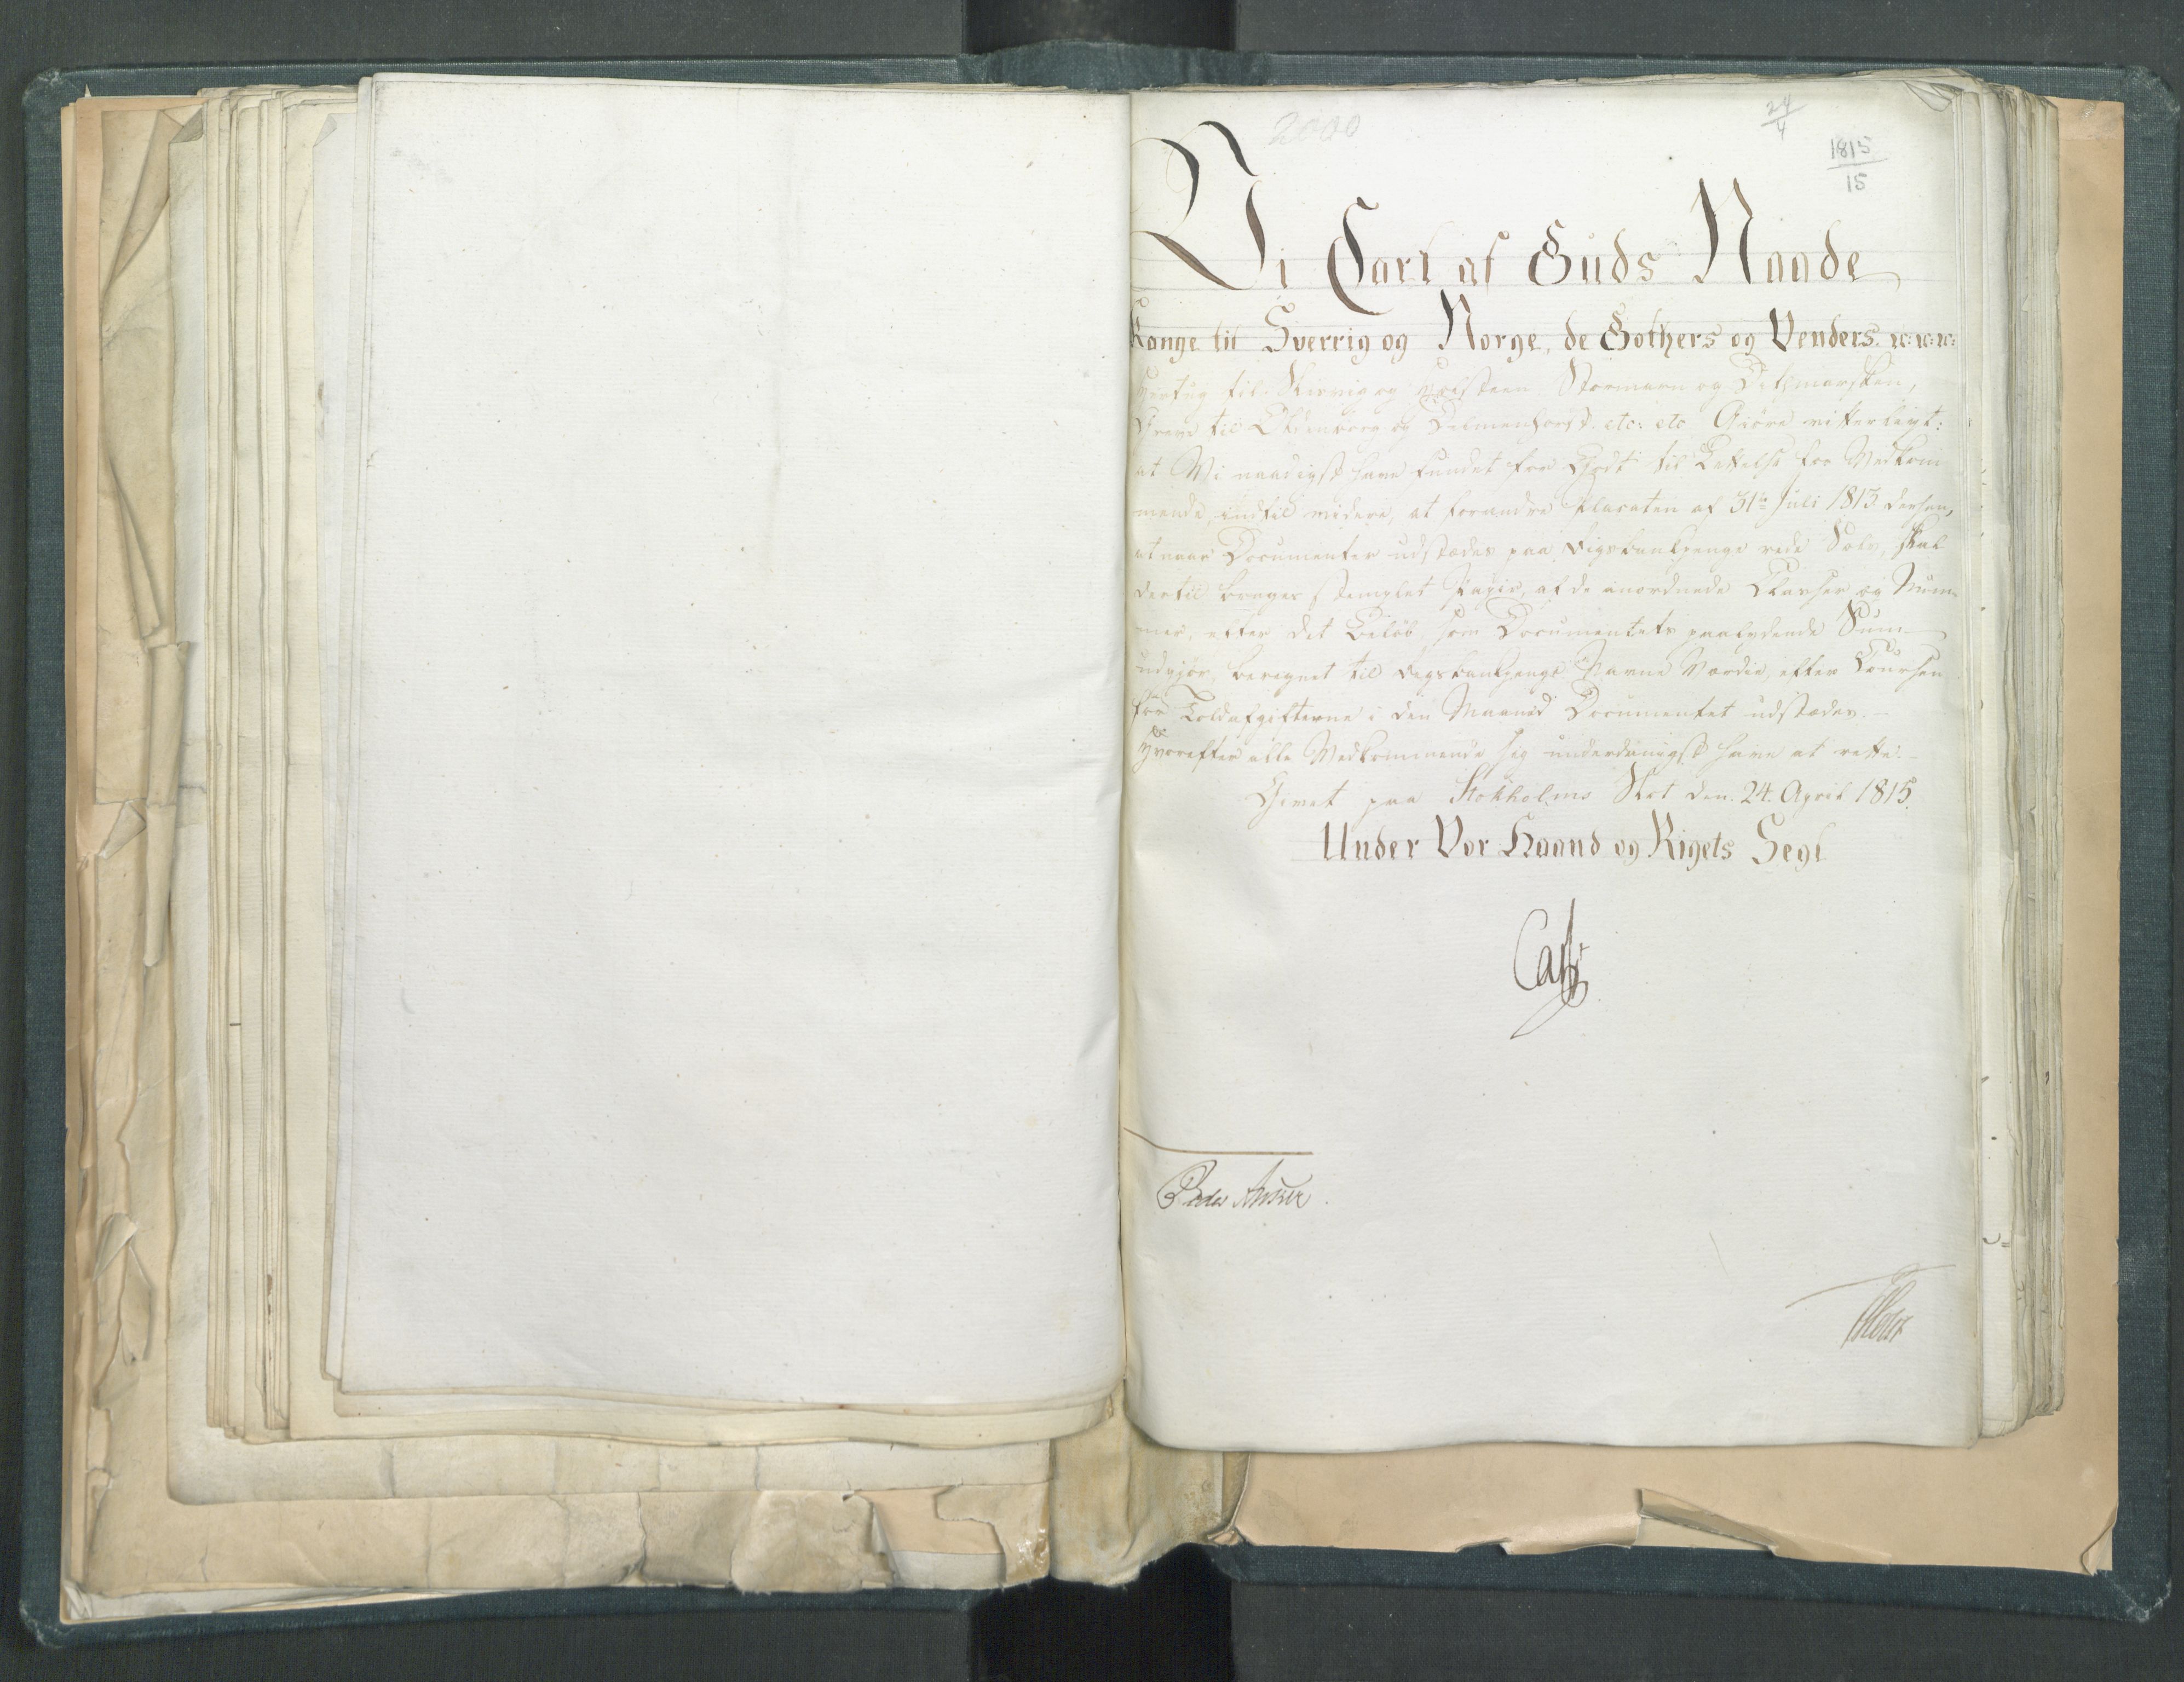 2000
24/4
1815/15
Vi Carl af Guds Naade
Konge til Sverrig og Norge, de Gothers og Venders ꝛc: ꝛc: ꝛc:
Hertug til Slesvig og Holsteen Stormarn og Dithmarsken,
Greve til Oldenborg og Delmenhorst. etc: etc Giöre vitterligt:
at Vi naadigst have fundet for Godt til Lettelse for Vedkom
mende, indtil videre, at forandre Placaten af 31te Juli 1813 derhen,
at naar Documenter udstædes paa Rigsbankpenge rede Sölv, skal
dertil bruges stemplet Papir, af de anordnede Classer og Num-
mer, efter det Belöb som Documentets paalydende Sum
udgjör, beregnet til Rigsbankpenge Navne Værdie, efter Coursen
for Toldafgifterne i den Maaned Documentet udstædes. —
Hvorefter alle Vedkommende sig underdanigst have at rette. —
Givet paa Stokholms Slot den. 24. April 1815.
Under Vor Haand og Rigets Segl
Carl
Peder Anker.